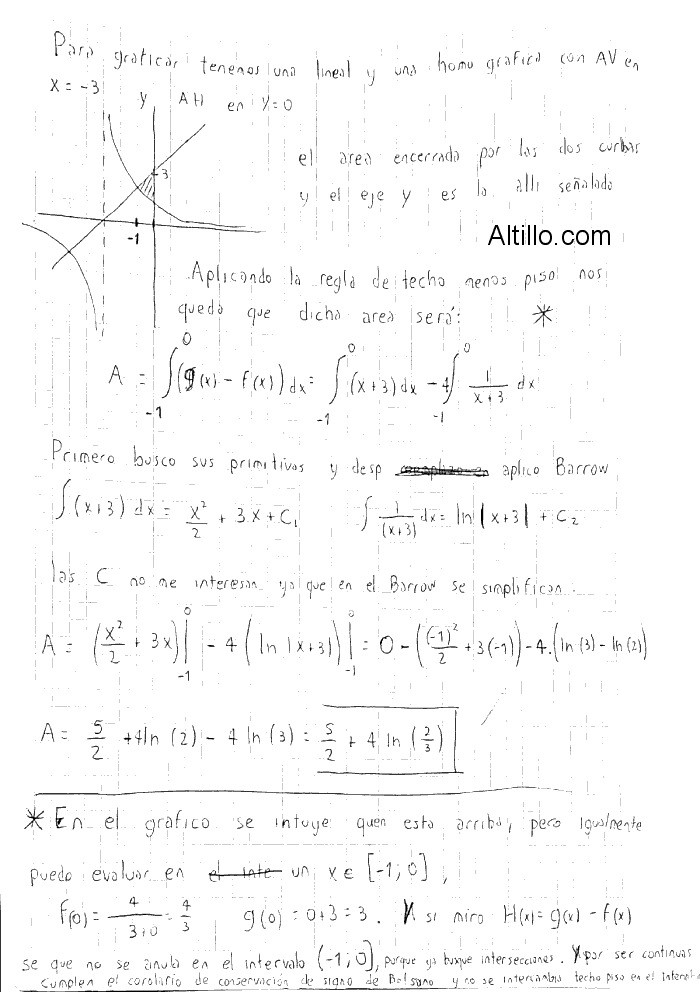 Para graficar tenemos una lineal y una homografica con AV en
x = -3 y AH en y=0
3
-1
el area encerrada por las dos curbas
y el eje y es la alli señalada
Altillo.com
Aplicando la regla de techo menos piso nos
queda que dicha area será: *
A = ∫₋₁⁰ (g(x) - f(x)) dx = ∫₋₁⁰ (x+3) dx - 4 ∫₋₁⁰ 1/(x+3) dx
Primero busco sus primitivas y desp aplico Barrow
∫(x+3) dx = x²/2 + 3x + C₁ ∫ 1/(x+3) dx = ln|x+3| + C₂
las C no me interesan ya que en el Barrow se simplifican.
A = (x²/2 + 3x)|₋₁⁰ - 4 (ln|x+3|)|₋₁⁰ = 0 - ((-1)²/2 + 3(-1)) - 4.(ln(3) - ln(2))
A = 5/2 + 4ln(2) - 4 ln(3) = 5/2 + 4 ln(2/3)
* En el grafico se intuye quen esta arriba, pero igualmente
puedo evaluar en el inte un x ∈ [-1;0],
f(0) = 4/(3+0) = 4/3 g(0) = 0+3 = 3. Y si miro H(x) = g(x) - f(x)
se que no se anula en el intervalo (-1;0], porque ya busque intersecciones. Y por ser continuas
cumplen el corolario de conservación de signo de Bolzano y no se intercambia techo piso en el